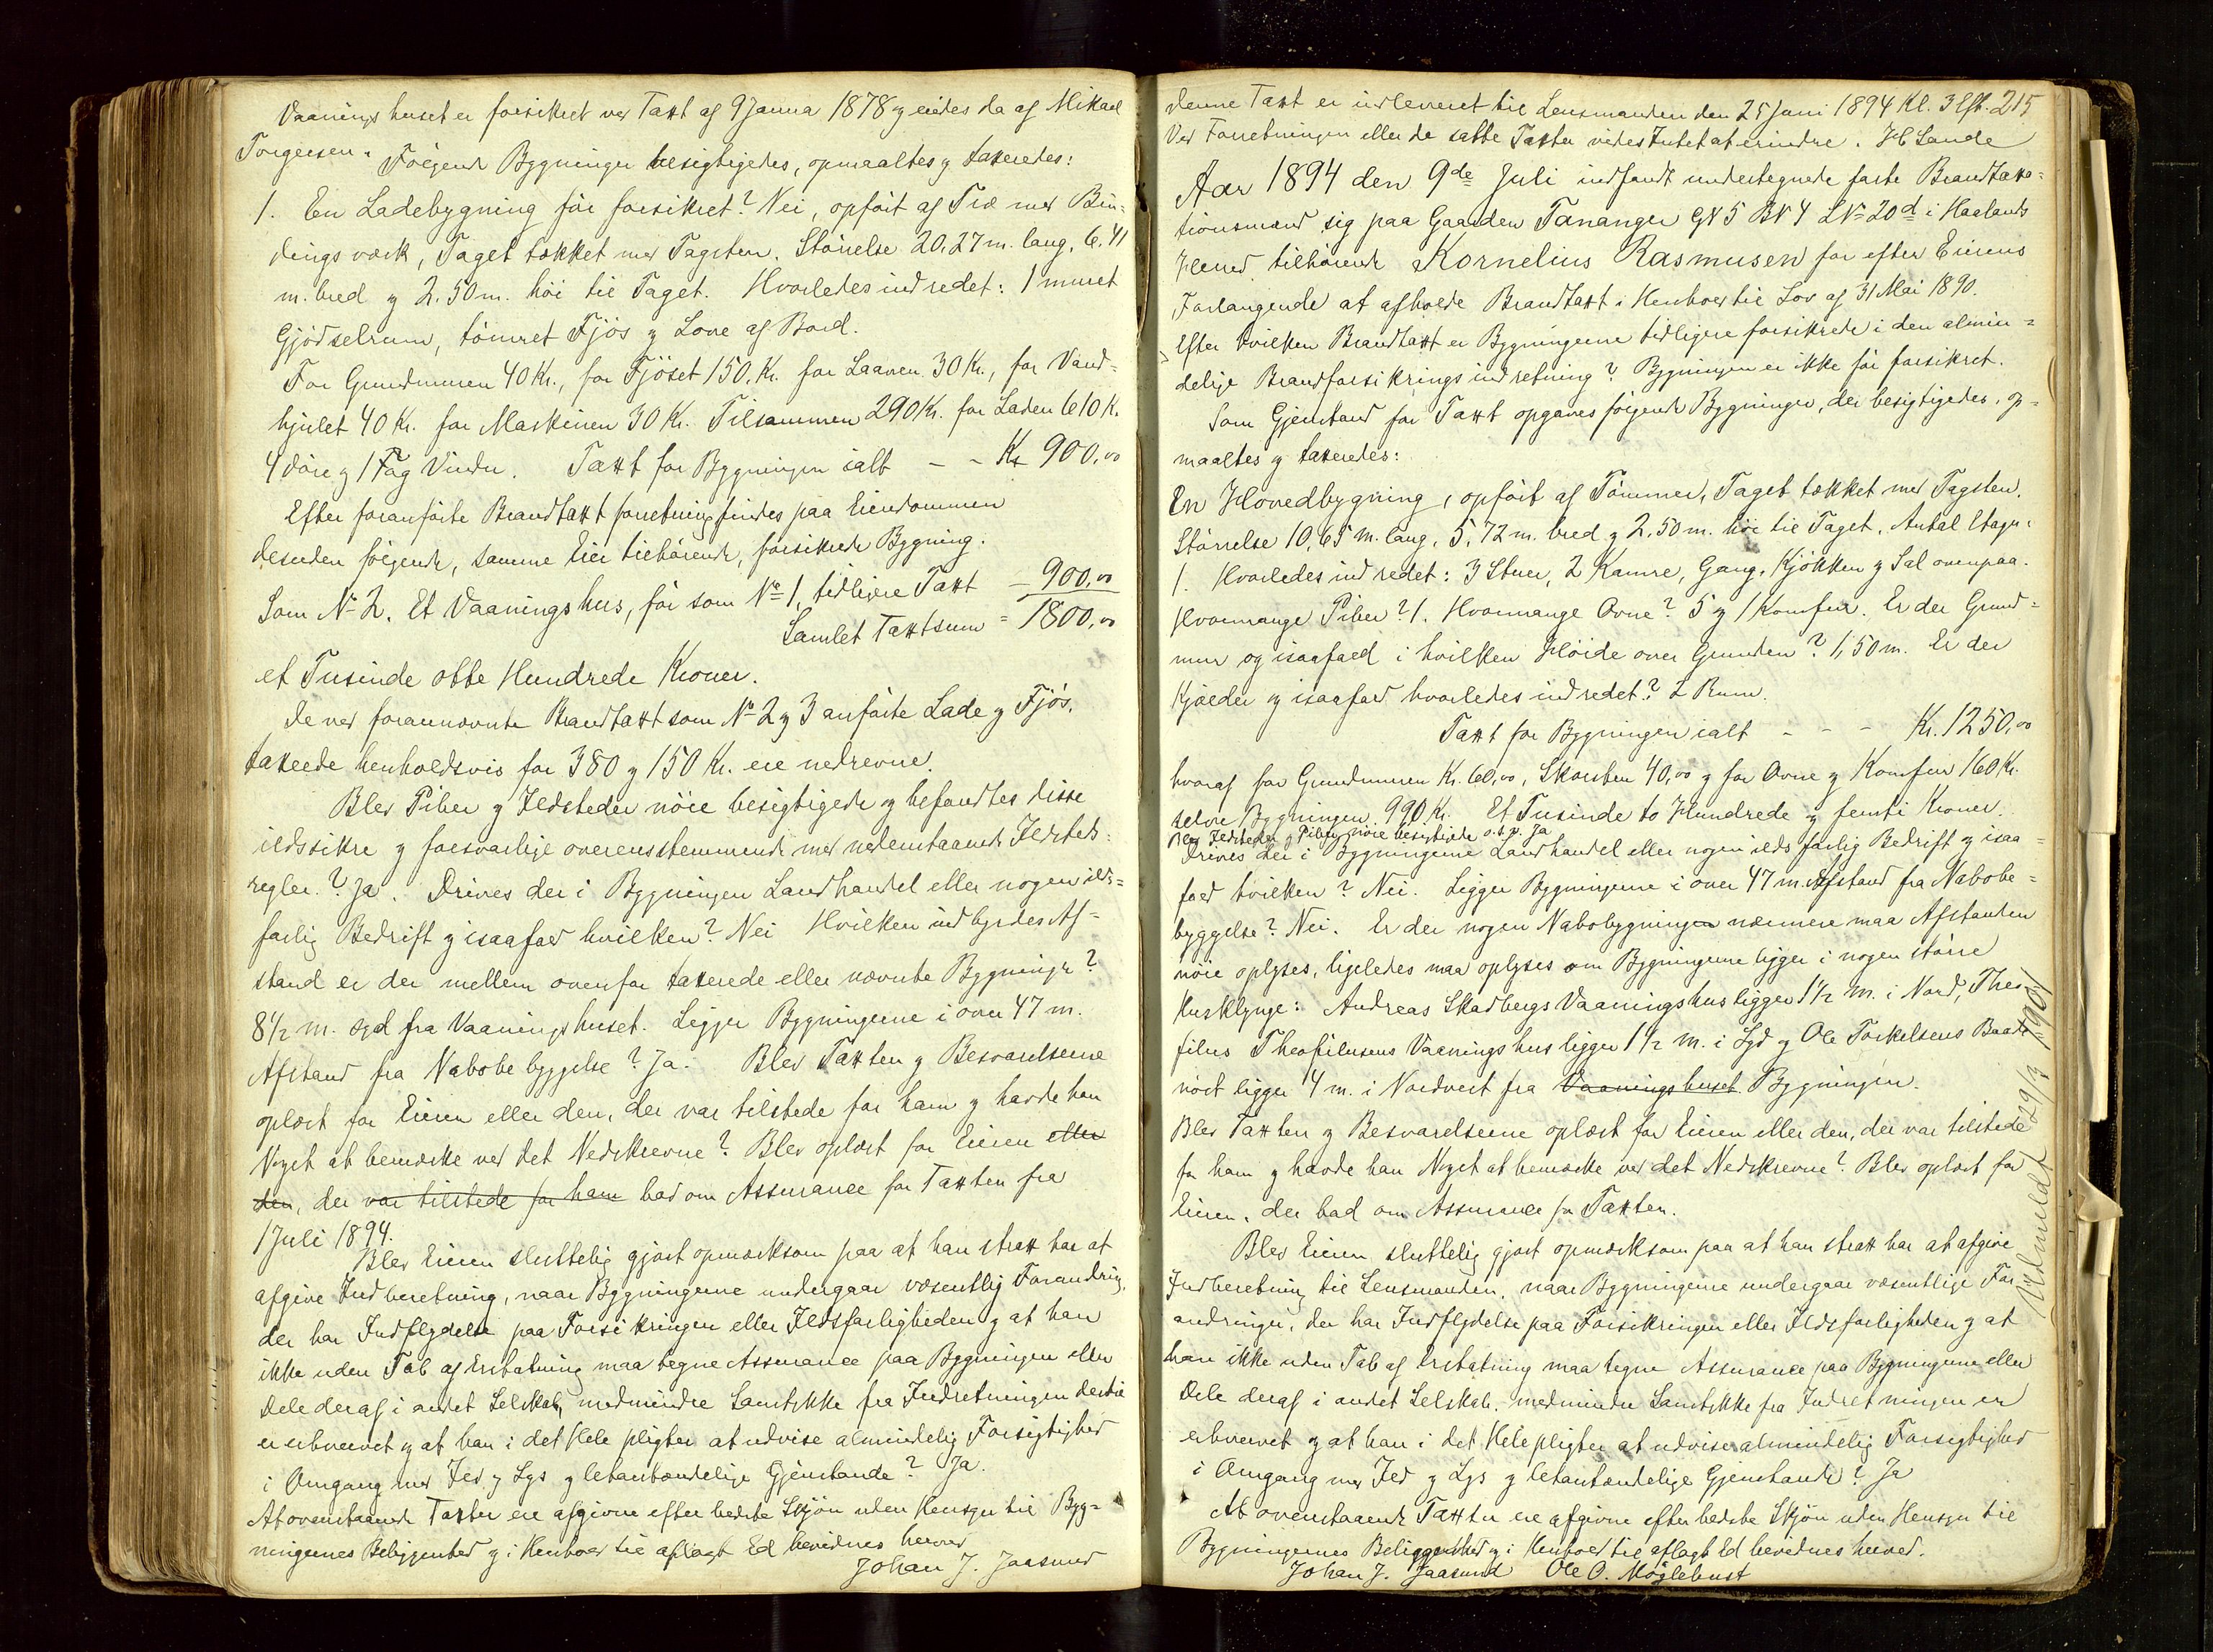 Vaaningshuset er forsikret ved Taxt af 9 Janua 1878 og eiedes da af Mikael
Torgersen. Følgende Bygninger besigtigedes, opmaaltes og taxeredes:
1. En Ladebygning før forsikret? Nei, opført af Træ med Bin-
dingsværk, Taget tækket med Tagsten. Størrelse 20,27 m. lang, 6,41
m. bred og 2.50 m. høi til Taget. Hvorledes indredet: 1 muret
Gjødselrum, tømret Fjøs og Love af Bord.
For Grundmuren 40 Kr., for Fjøset 150. Kr. for Laaven 30 Kr., for Vand-
hjulet 40 Kr. for Maskinen 30 Kr. Tilsammen 290 Kr. for Laden 610 K.
4 døre og 1 Fag Vindu. Taxt for Bygningen ialt - - Kr 900,00
Efter foranførte Brandtaxtforretning findes paa Eiendommen
desuden følgende, samme Eier tilhørende, forsikrede Bygning.
Som No 2. Et Vaaningshus, før som No 1, tidligere Taxt - 900,00
Samlet Taxtsum = 1800,00
et Tusinde otte Hundrede Kroner.
De ved forannævnte Brandtaxt som No 2 og 3 anførte Lade og Fjøs,
taxerede henholdsvis for 380 og 150 Kr. ere nedrevne.
Blev Piber og Ildsteder nöie besigtigede og befandtes disse
ildssikre og forsvarlige overensstemmende med nedenstaaende Ildsteds-
regler? Ja. Drives der i Bygningen Landhandel eller nogen ilds-
farlig Bedrift og isaafald hvilken? Nei Hvilken indbyrdes Af-
stand er der mellem ovenfor taxerede eller nævnte Bygninger?
8 1/2 m. syd fra Vaaningshuset. Ligger Bygningerne i over 47 m.
Afstand fra Nabobebyggelse? Ja. Blev Taxten og Besvarelserne
oplæst for Eieren eller den, der var tilstede for ham og havde han
Noget at bemærke ved det Nedskrevne? Blev oplæst for Eieren eller
den, der var tilstede for ham bad om Assurance for Taxten fra
1 Juli 1894.
Blev Eieren sluttelig gjort opmærksom paa at han strax har at
afgive Indberetning, naar Bygningerne undergaar væsentlig Forandring,
der har Indflydelse paa Forsikringen eller Ildsfarligheden og at han
ikke uden Tab af Erstatning maa tegne Assurance paa Bygningen eller
Dele deraf i andet Selskab, medmindre Samtykke fra Indretningen dertil
er erhvervet og at han i det Hele pligter at udvise almindelig Forsigtighed
i Omgang med Ild og Lys og letantændelige Gjenstande? Ja.
At ovenstaaende Taxter ere afgivne efter bedste Skjøn uden Hensyn til Byg-
ningernes Beliggenhed og i Henhold til aflagt Ed bevidnes herved
Johan J. Jaasund
Denne Taxt er indleveret til Lensmanden den 25 Juni 1894 Kl. 3 Eft. 215
Ved Forretningen eller de satte Taxter vides Intet at erindre. H Sande
Aar 1894 den 9de Juli indfandt undertegnede faste Brandtaxa-
tionsmænd sig paa Gaarden Tananger GN 5 BN 4 LNo 20d i Haalands
Herred tilhørende Kornelius Rasmusen for efter Eierens
Forlangende at afholde Brandtaxt i Henhold til Lov af 31 Mai 1890.
Efter hvilken Brandtaxt er Bygningerne tidligere forsikrede i den almin-
delige Brandforsikringsindretning? Bygningen er ikke før forsikret.
Som Gjenstand for Taxt opgaves følgende Bygninger, der besigtigedes, op-
maaltes og taxeredes:
En Hovedbygning, opført af Tömmer, Taget tækket med Tagsten.
Størrelse 10,65 m. lang, 5,72 m. bred og 2,50 m. høi til Taget. Antal Etager
1. Hvorledes indredet: 3 Stuer, 2 Kamre, Gang, Kjøkken og Sal ovenpaa.
Hvormange Piber? 1. Hvormange Ovne? 5 og 1 Komfur. Er der Grund-
mur og isaafald i hvilken Höide over Grunden? 1,50 m. Er der
Kjælder og isaafald hvorledes indredet? 2 Rum.
Taxt for Bygningen ialt - - - Kr. 1250,00
hvoraf for Grundmuren Kr. 60,00, Skorsten 40,00 og for Ovne og Komfur 160 Kr.
selve Bygningen 990 Kr. Et Tusinde to Hundrede og femti Kroner.
Blev Ildsteder og Piber nöie besigtigede o.s.v. Ja
Drives der i Bygningerne Landhandel eller nogen ildsfarlig Bedrift og isaa-
fald hvilken? Nei. Ligger Bygningerne i over 47 m. Afstand fra Nabobe-
byggelse? Nei. Er der nogen Nabobygningen nærmere maa Afstanden
nöie oplyses, ligeledes maa oplyses om Bygningerne ligger i nogen större
Husklynge: Andreas Skadbergs Vaaningshus ligger 1 1/2 m. i Nord, Theo-
filus Theofilusens Vaaningshus ligger 1 1/2 m. i Syd og Ole Torkelsens Baad-
nöst ligger 4 m. i Nordvest fra Vaaningshuset Bygningen.
Blev Taxten og Besvarelserne oplæst for Eieren eller den, der var tilstede
for ham og havde han Noget at bemærke ved det Nedskrevne? Blev oplæst for
Eieren, der bad om Assurance for Taxten.
Blev Eieren sluttelig gjort opmærksom paa at han strax har at afgive
Indberetning til Lensmanden, naar Bygningerne undergaar væsentlige For-
andringer, der har Indflydelse paa Forsikringen eller Ildsfarligheden og at
han ikke uden Tab af Erstatning maa tegne Assurance paa Bygningerne eller
Dele deraf i andet Selskab, medmindre Samtykke fra Indretningen er
erhvervet og at han i det Hele pligter at udvise almindelig Forsigtighed
i Omgang med Ild og Lys og letantændelige Gjenstande? Ja
At ovenstaaende Taxter ere afgivne efter bedste Skjön uden Hensyn til
Bygningernes Beliggenhed og i Henhold til aflagt Ed bevidnes herved.
Johan J. Jaasund Ole O. Möglebust
Udmeldt 29/3 1901